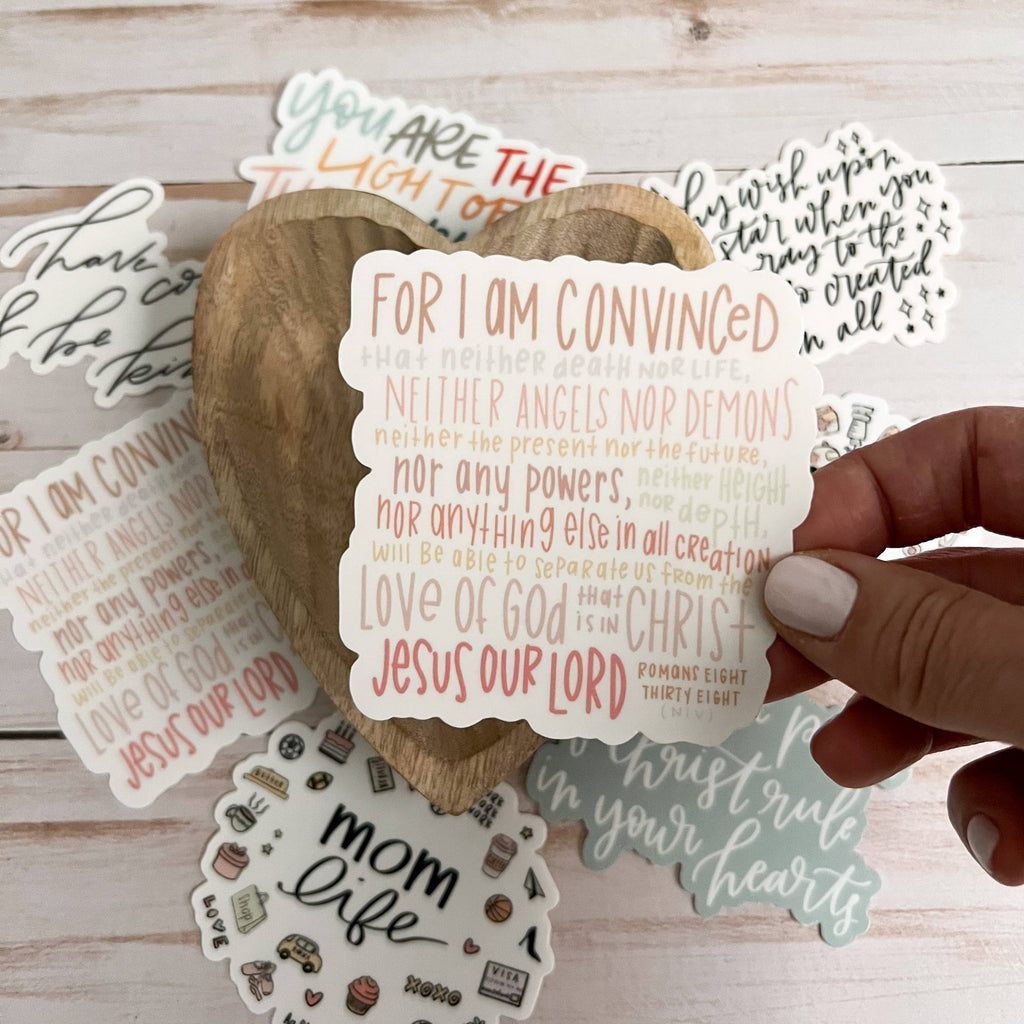 YOU ARE THE
LIGHT OF
have co
& be
kin
hy wish upon
star when you
ray to the
o created
m all
FOR I AM CONVINCeD
that neither death NOR LIFE,
NEITHER ANGELS NOR DEMONS
neither the present nor the future,
nor any powers, neither HEIGHT
nor depth,
nor anything else in all creation
will Be able to separate us from the
LOVE OF GOD that is IN CHRIST
JESUS OUR LORD
ROMANS EIGHT
THIRTY EIGHT
(NIV)
OR I AM CONVIN
that neither death
NEITHER ANGELS NOR
neither the present nor
nor any powers,
nor anything else in
will Be able to separate
LOVE OF GOD that is IN
JESUS OUR LORD
mom
life
shop
LOVE
TAXI
XOXO
VISA
Christ rule
in your
hearts